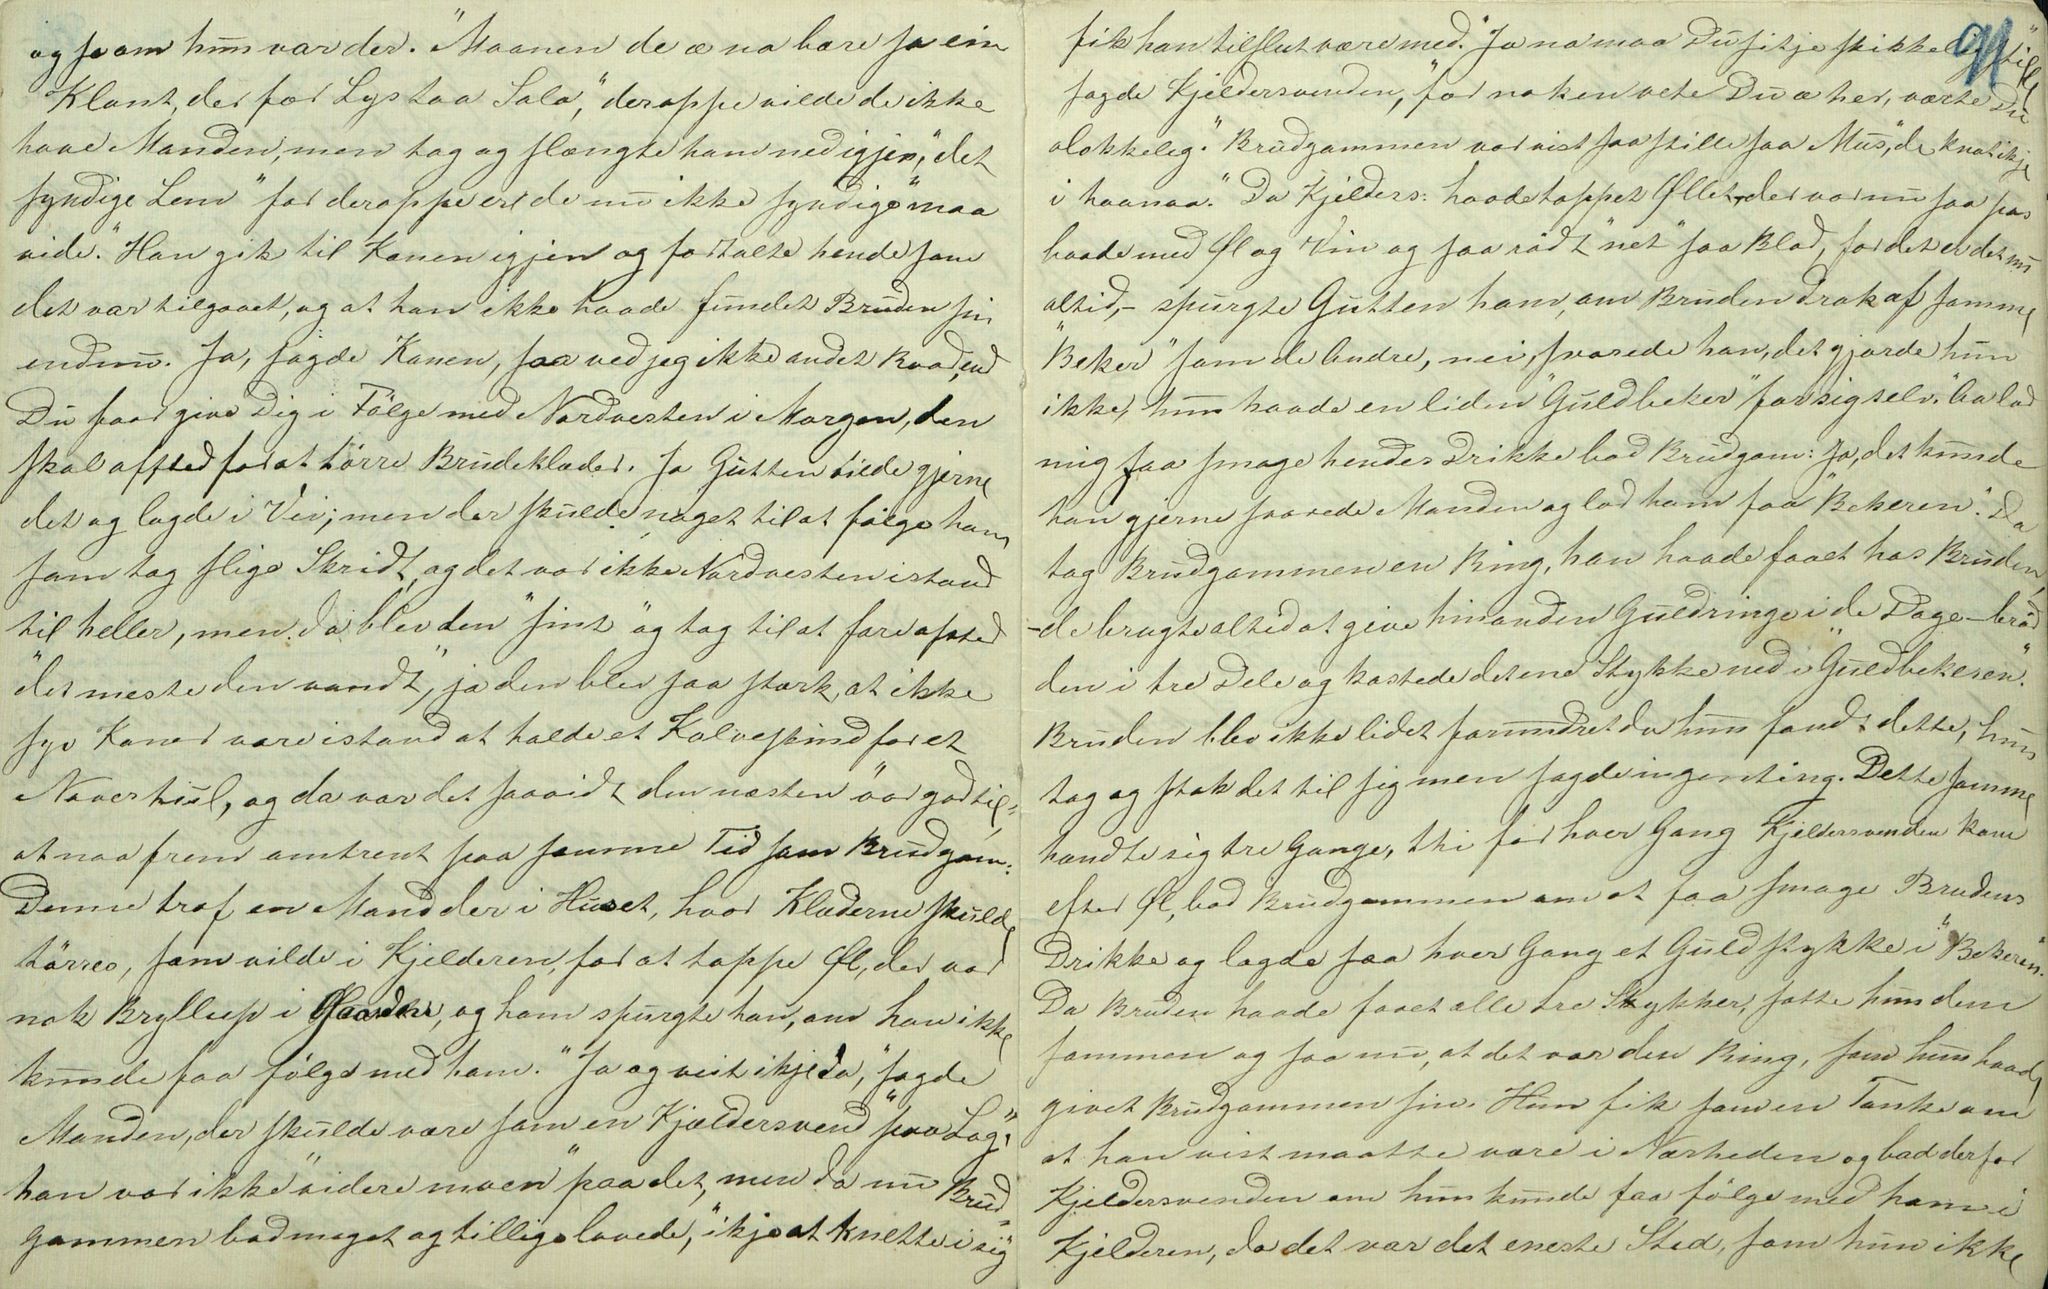 og saa om hun var der. "Maanen de æ no bare so ein
Klant, der fær Lys taa Sola," deroppe vilde de ikke
have Manden, men tog og slængte ham ned igjen, "det
syndige Lem" for deroppe er de nu ikke syndige "maa
vide." Han gik til Konen igjen og fortalte hende som
det var tilgaaet, og at han ikke havde fundet Bruden sin
endnu. Ja, sagde Konen, saa ved jeg ikke andet Raad, end
Du faar give Dig i Fölge med Nordvesten i Morgen, den
skal afsted for at törre Brudeklæder. Ja Gutten vilde gjerne
det og lagde i Vei; men der skulde noget til at fölge ham
som tog slige Skridt, og det var ikke Nordvesten istand
til heller, men da blev den "sint" og tog til at fare afsted
"det meste den vandt", ja den blev saa stærk, at ikke
syv Koner vare istand at holde et Kalveskind for et
Naverhul, og da var det saavidt den næsten var god til,
at naa frem omtrent paa samme Tid som Brudgom:
Denne traf en Mand der i Huset, hvor Klæderne skulde
törres, som vilde i Kjelderen, for at tappe Øl, der var
nok Bryllup i Gaarden, og ham spurgte han, om han ikke
kunde faa fölge med ham. "Ja og veit ikje da," sagde
Manden, der skulde være som en Kjældersvend "paa Lag",
han var ikke "videre moen" paa det, men da nu Brud-
gommen bad meget og tillige lovede, "ikje at knette i sig"
fik han tilslut være med. "Ja no maa Du sitje skikkelig still"
sagde Kjeldersvenden, "før no ken vete Du æ her, værte Du
olokkeleg." Brudgommen var vist saa stille saa Mus, "de knat ikje
i haanaa." Da Kjelders: havde tappet Øllet, der var nu saa pas
baade med Øl og Vin og saa rödt "net" saa Blod, for det er det nu
altid,- spurgte Gutten ham, om Bruden drak af samme
"Beker" som de andre, nei, svarede han, det gjorde hun
ikke, hun havde en liden "Guldbeker" for sig selv. "Aa lad
mig faa smage hendes Drikke bad Brudgom: Ja, det kunde
han gjerne svarede Manden og lod ham faa "Bekeren." Da
tog Brudgommen en Ring, han havde faaet hos Bruden,
-de brugte altid at give hinanden Guldringe i de Dage- bröd
den i tre Dele og kastede det ene Stykke ned i "Guldbekeren".
Bruden blev ikke lidet forundret da hun fandt dette, hun
tog og stak det til sig men sagde ingenting. Dette samme
hændte sig tre Gange, thi for hver Gang Kjeldersvenden kom
efter Øl, bad Brudgommen om at faa smage Brudens
Drikke og lagde saa hver Gang et Guldstykke i "Bekeren".
Da Bruden havde faaet alle tre Stykker, satte hun dem
sammen og saa nu, at det var den Ring, som hun havde
givet Brudgommen sin. Hun fik som en Tanke om
at han vist maatte være i Nærheden og bad derfor
Kjeldersvenden om hun kunde faa fölge med ham i
Kjelderen, da det var det eneste Sted, som hun ikke